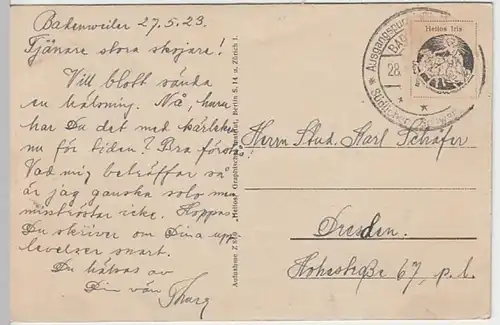 Badenweiler 27.5.23.
Tjänare stora skojare!
Vill blott sända
en hälsning. Nå, huru
har Du det med kärleken
nu för tiden? Bra förstås
Vad mig beträffar så
är jag ganska solo men
misströstar icke. Hoppas
Du skriver om Dina upp-
levelser snart.
Du hälsas av
Din vän
Herrn Stud. Karl Schäfer
Dresden.
Hohestraße 67, p. l.
Helios Iris
Ausgangspunkt
BAD
28.
Südlicher
Aufnahme "Helios" Graphisches Institut, Berlin S. 14 u. Zürich I.